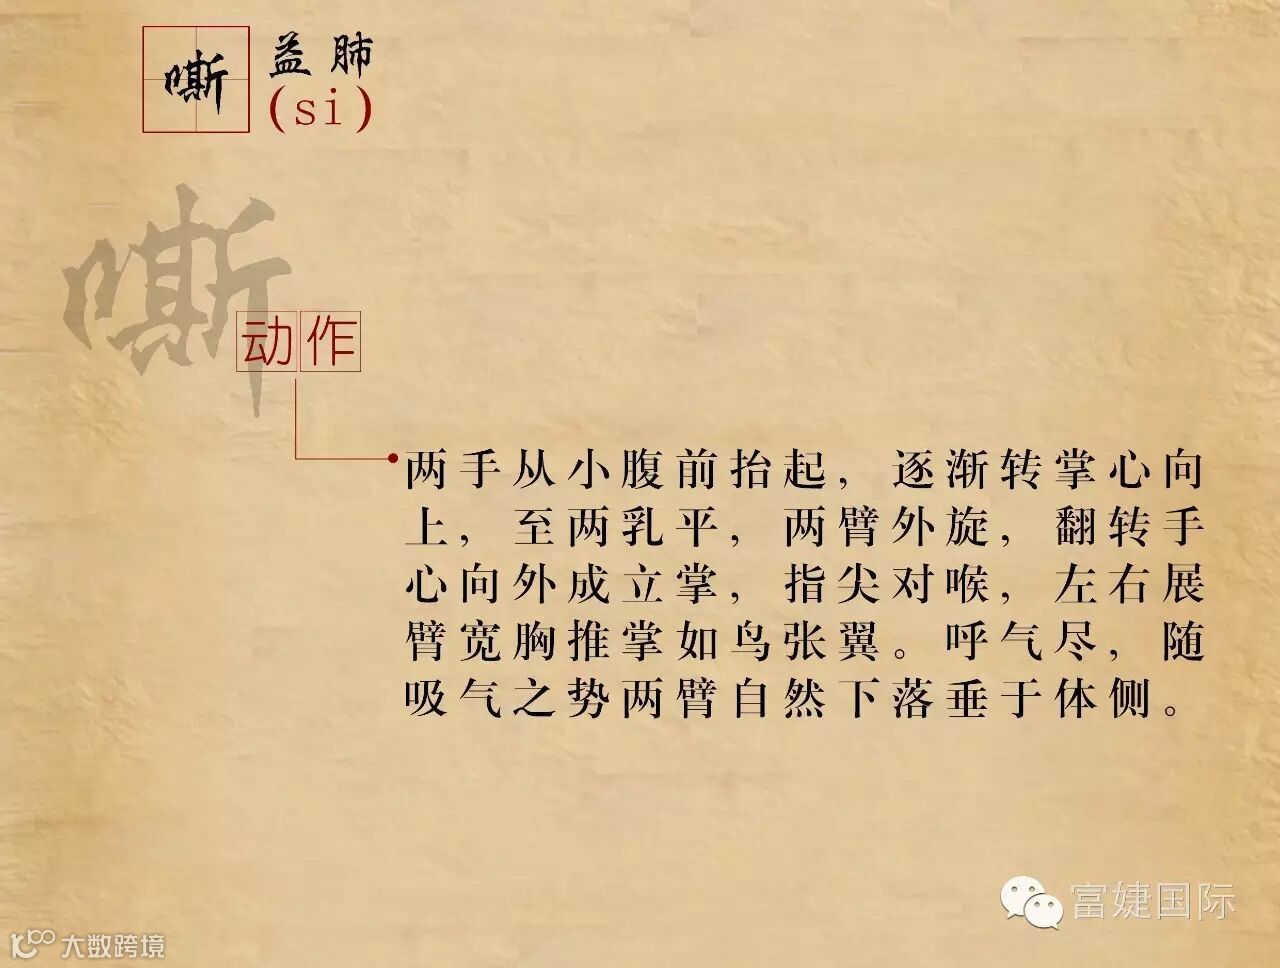 嘶
益肺
(si)
嘶
动作
两手从小腹前抬起，逐渐转掌心向
上，至两乳平，两臂外旋，翻转手
心向外成立掌，指尖对喉，左右展
臂宽胸推掌如鸟张翼。呼气尽，随
吸气之势两臂自然下落垂于体侧。
富婕国际
大数跨境